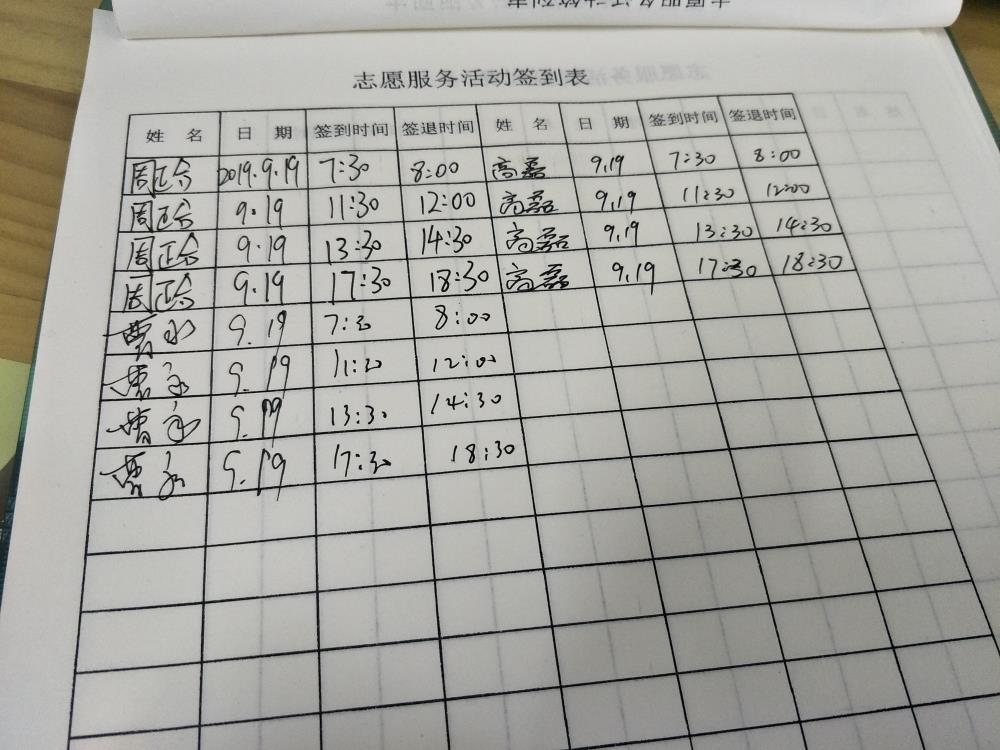 志愿服务活动签到表
姓 名 日 期 签到时间 签退时间 姓 名 日 期 签到时间 签退时间
周正合 2019.9.19 7:30 8:00 高磊 9.19 7:30 8:00
周正合 9.19 11:30 12:00 高磊 9.19 11:30 12:00
周正合 9.19 13:30 14:30 高磊 9.19 13:30 14:30
周正合 9.19 17:30 18:30 高磊 9.19 17:30 18:30
9.19 7:30 8:00
9.19 11:30 12:00
9.19 13:30 14:30
9.19 17:30 18:30